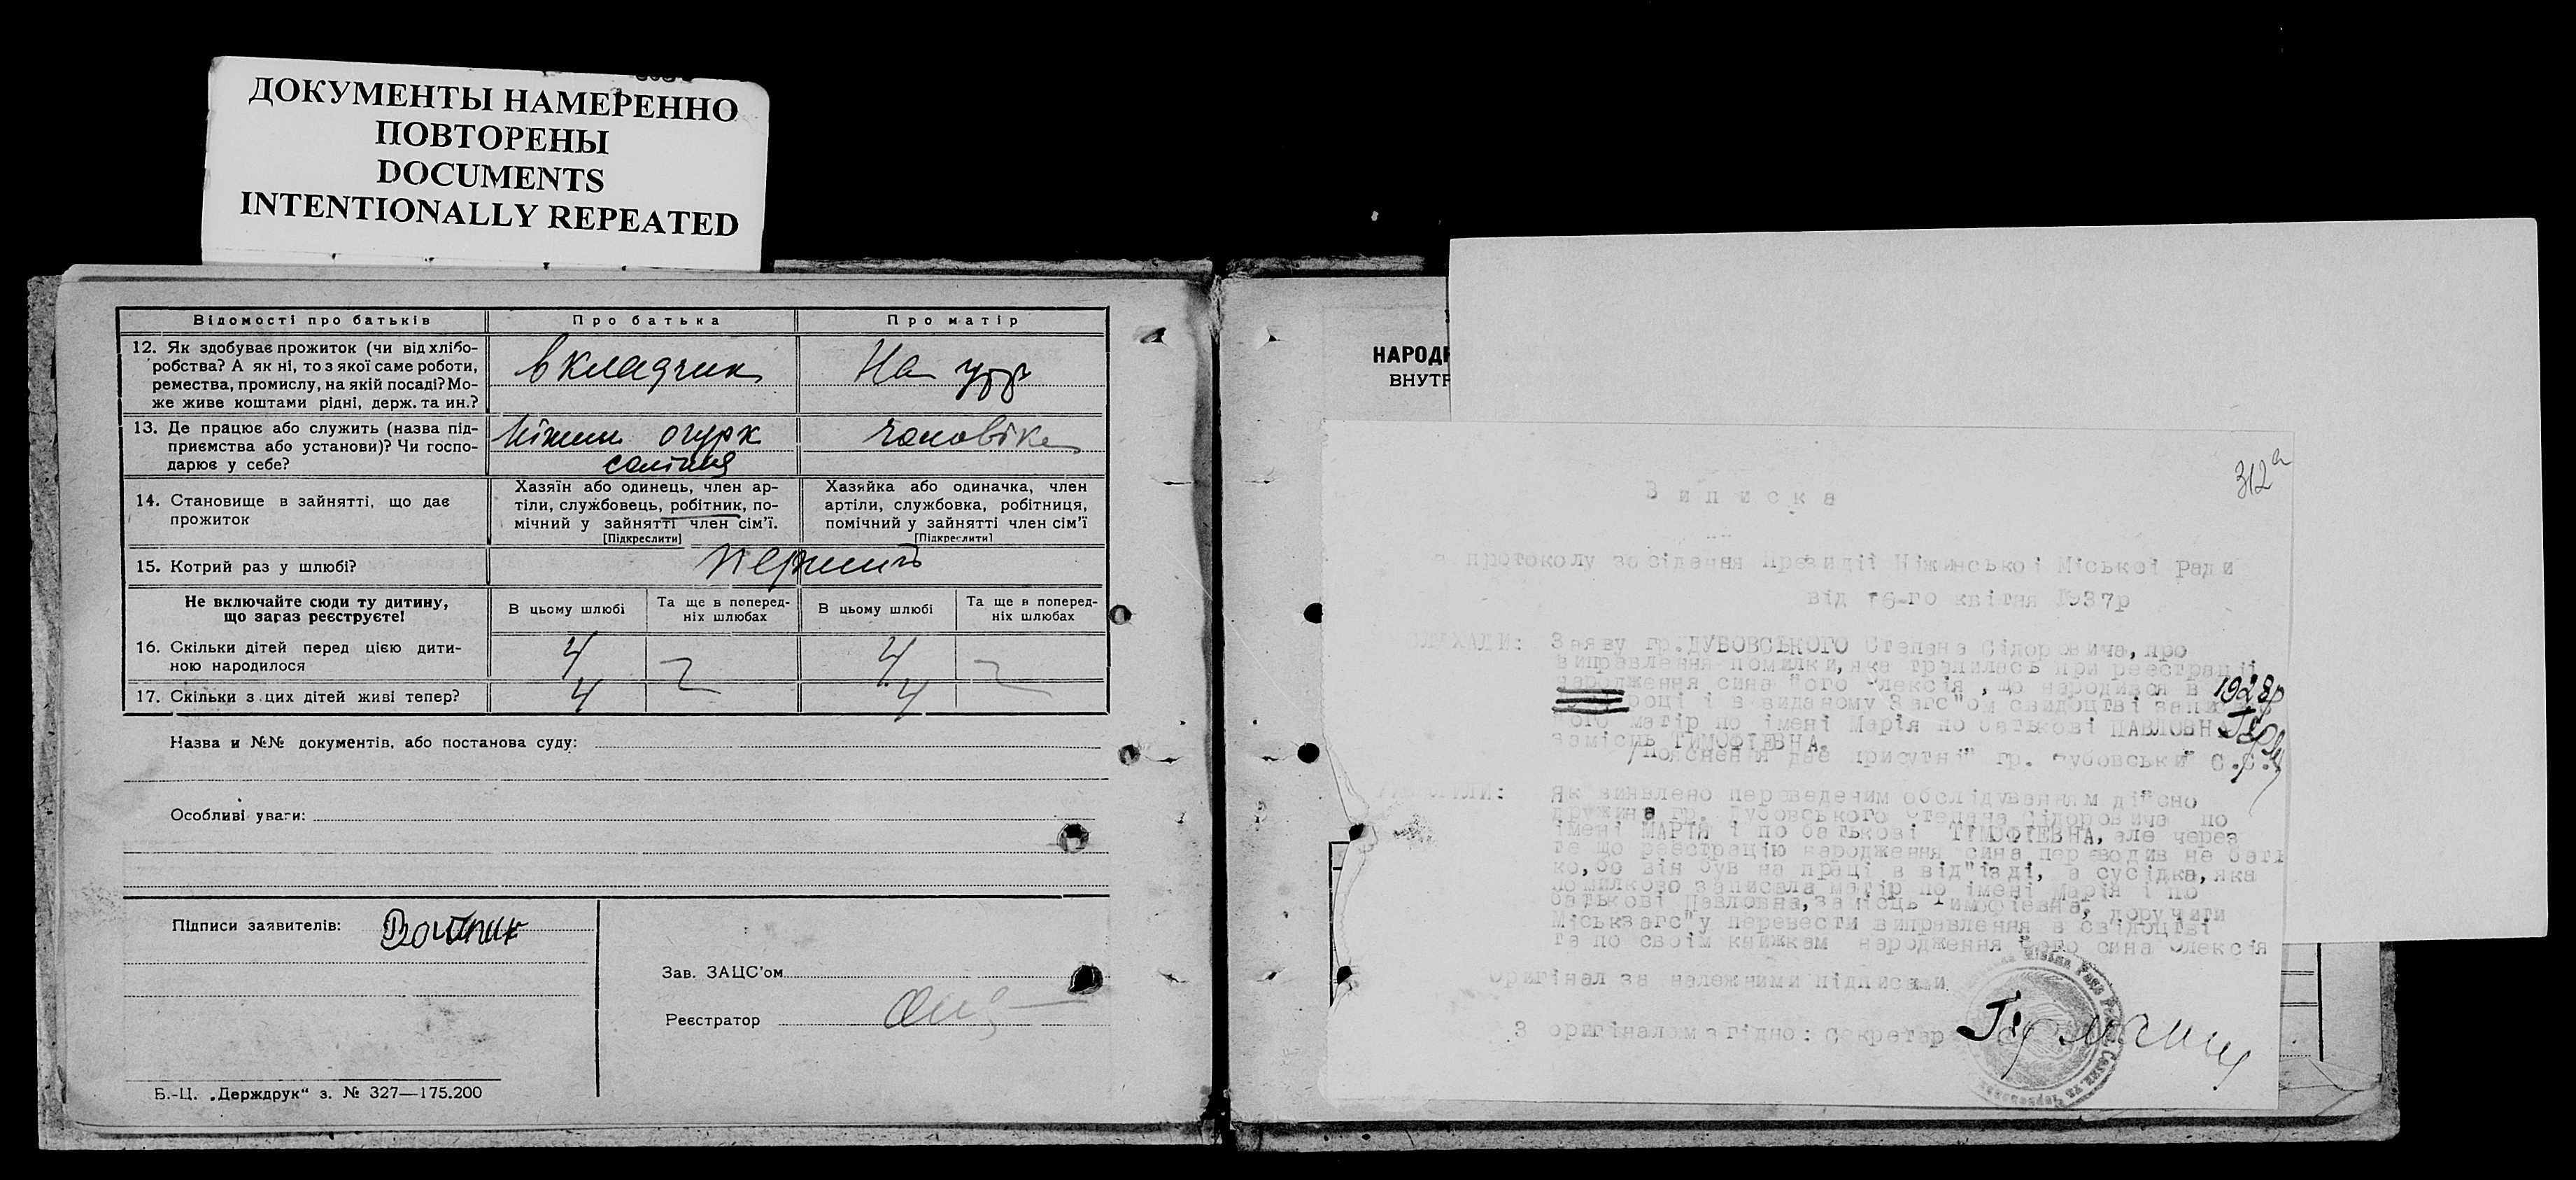 ДОКУМЕНТЫ НАМЕРЕННО
ПОВТОРЕНЫ
DOCUMENTS
INTENTIONALLY REPEATED
Відомості про батьків
Про батька
Про матір
12. Як здобуває прожиток (чи від хлібо-
робства? А як ні, то з якої саме роботи,
ремества, промислу, на якій посаді? Мо-
же живе коштами рідні, держ. та ин.?
вкладчик
На утр
13. Де працює або служить (назва під-
приємства або установи)? Чи госпо-
дарює у себе?
Ніжин огурк
чоловіка
14. Становище в зайнятті, що дає
прожиток
Хазяїн або одинець, член ар-
тіли, службовець, робітник, по-
мічний у зайнятті член сім'ї.
[Підкреслити]
Хазяйка або одиначка, член
артіли, службовка, робітниця,
помічний у зайнятті член сім'ї
[Підкреслити]
15. Котрий раз у шлюбі?
перший
Не включайте сюди ту дитину,
що зараз реєструєте!
В цьому шлюбі
Та ще в поперед-
ніх шлюбах
В цьому шлюбі
Та ще в поперед-
ніх шлюбах
16. Скільки дітей перед цією дити-
ною народилося
4
4
17. Скільки з цих дітей живі тепер?
4
4
Назва и №№ документів, або постанова суду:
Особливі уваги:
Підписи заявителів:
Зав. ЗАЦС'ом
Реєстратор
Б.-Ц. „Держдрук“ з. № 327—175.200
НАРОД
ВНУТР
312а
Виписка
протоколу засідання Президії Ніжинської Міської Ради
від 16-го квітня 1937р
СЛУХАЛИ: Заяву гр.ДУБОВСЬКОГО Степана Сідоровича, про
виправлення помилки, яка трапилась при реєстрації
народження сина його Олексія, що народився в 1928р
році і в виданому Загс"ом свідоцтві
його матір по імені Марія по батькові ПАВЛОВНА
замісць ТИМОФІЕВНА.
/Пояснення дає присутній гр. Дубовський С.С./
Як виявлено переведеним обслідуванням дійсно
дружина гр. Дубовського Степана Сідоровича по
імені МАРІЯ і по батькові ТИМОФІЕВНА, але через
те що реєстрацію народження сина переводив не бать
ко, бо він був на праці в від"їзді, а сусідка, яка
помилково записала матір по імені Марія і по
батькові Павловна, замісць Тимофіевна, доручити
Міськзагс"у перевести виправлення в свідоцтві
та по своїм книжкам народження його сина Олексія
Оригінал за належними підписами
З оригіналом згідно: Секретар